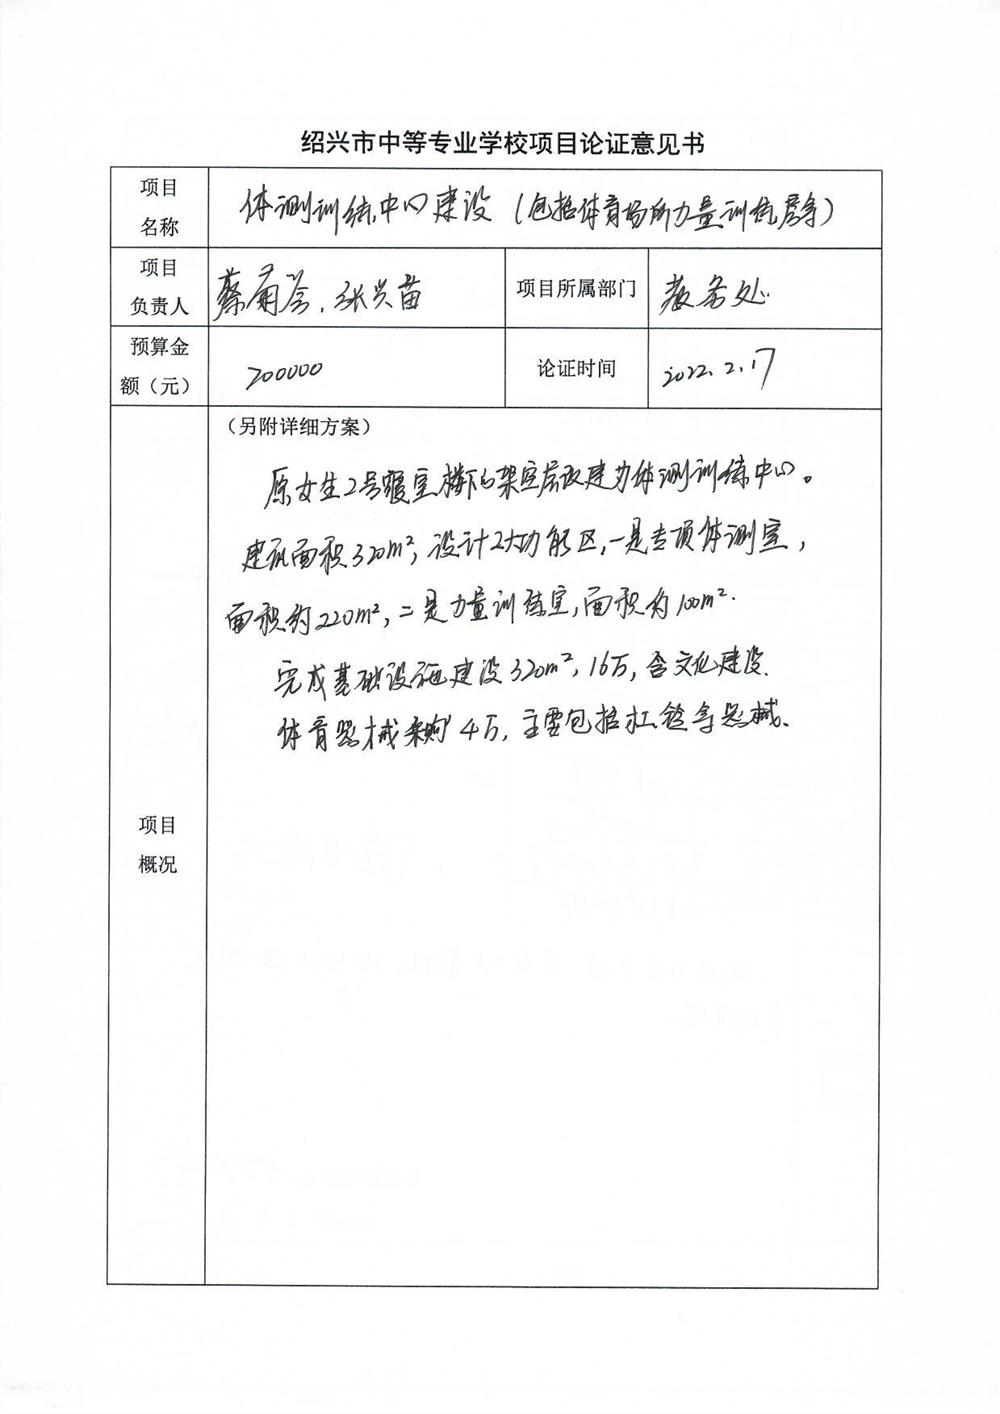 绍兴市中等专业学校项目论证意见书
项目
名称
体测训练中心建设（包括体育场所力量训练房等）
项目
负责人
蔡菊 张兴苗
项目所属部门
教务处
预算金
额（元）
200000
论证时间
2022.2.17
（另附详细方案）
原女生2号寝室楼下的架空层改建为体测训练中心。
建筑面积320m²,设计2大功能区,一是专项体测室,
面积约220m²,二是力量训练室,面积约100m².
完成基础设施建设320m²,16万,含文化建设.
体育器械采购4万,主要包括杠铃等器械.
项目
概况